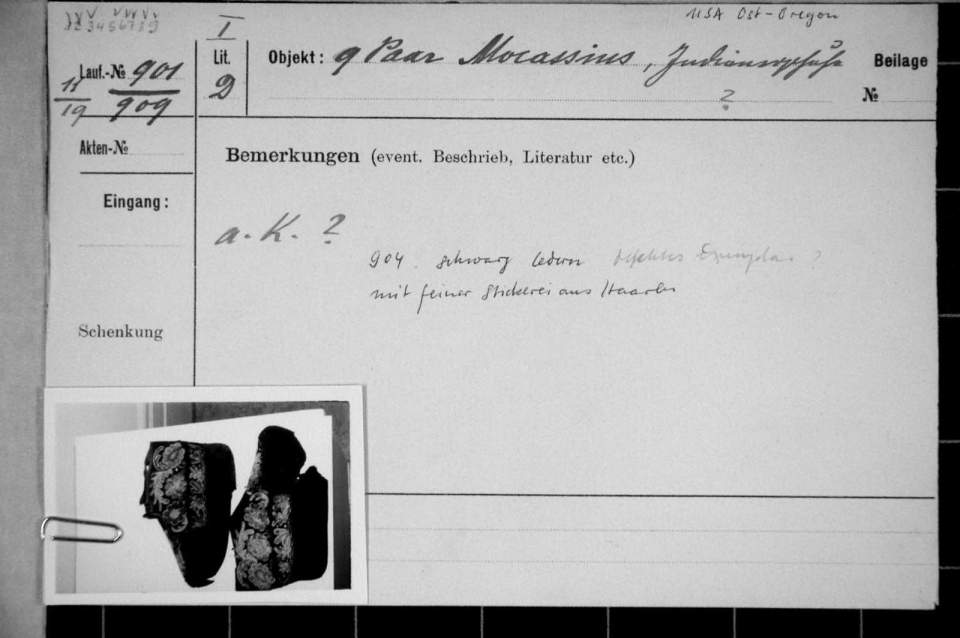 I V VIVI
123456789
I
USA Ost-Oregon
Lauf.-№ 901
11
19 909
Lit.
D
Objekt: 9 Paar Mocassins, Indianerschuhe
?
Beilage
№
Akten-№
Eingang:
Schenkung
Bemerkungen (event. Beschrieb, Literatur etc.)
a. K. ?
904. schwarz ledern defektes Exemplar ?
mit feiner Stickerei aus Haaren